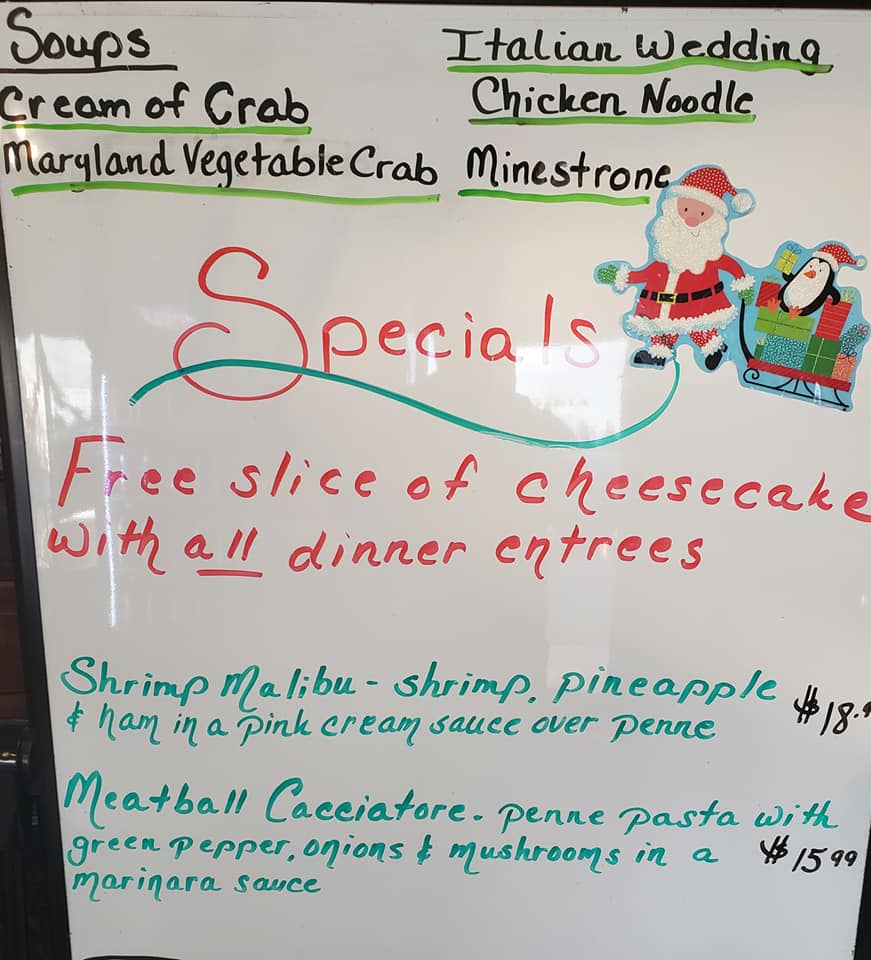 Soups
Cream of Crab
Maryland Vegetable Crab
Italian Wedding
Chicken Noodle
Minestrone
Specials
Free slice of cheesecake
with all dinner entrees
Shrimp Malibu - shrimp, pineapple
& ham in a pink cream sauce over penne
$18.
Meatball Cacciatore - penne pasta with
green pepper, onions & mushrooms in a
marinara sauce
$15 99